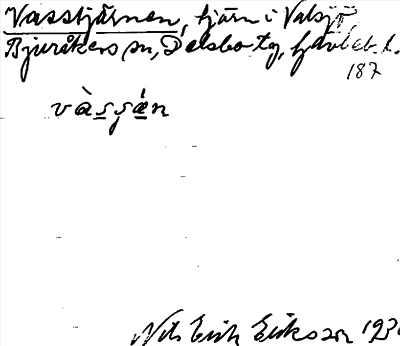 Vasstjärnen, tjärn i Valsjö
Bjuråkers sn, Delsbo tg, Gävleb. l.
187
vàsʂǽ̨n
Nils Erik Eriksson 193